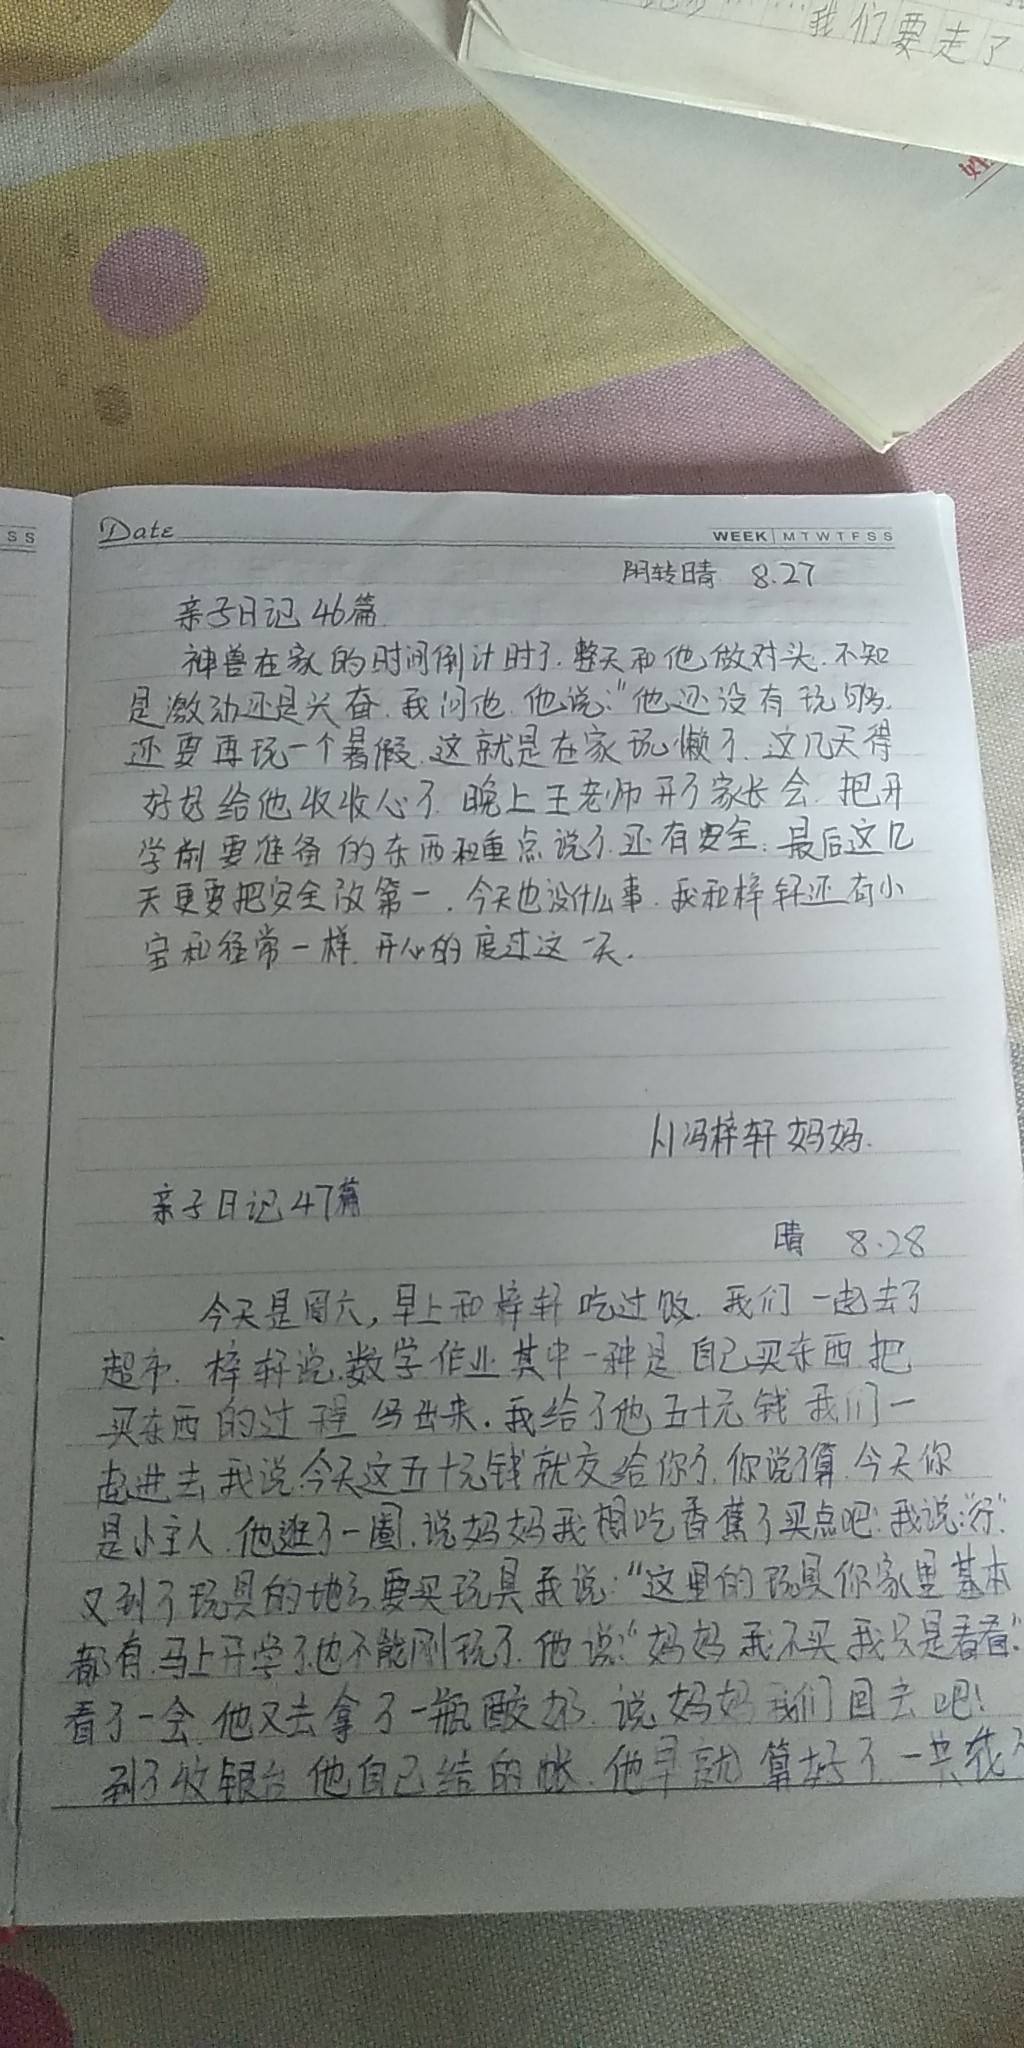 我们要走了
姓
S S
Date
WEEK M T W T F S S
阴转晴 8.27
亲子日记46篇
神兽在家的时间倒计时了.整天和他做对头.不知
是激动还是兴奋.我问他.他说:“他还没有玩够.
还要再玩一个暑假.这就是在家玩懒了.这几天得
好好给他收收心了.晚上王老师开了家长会.把开
学前要准备的东西和重点说了.还有安全.最后这几
天更要把安全放第一.今天也没什么事.我和梓轩还有小
宝和经常一样.开心的度过这一天.
冯梓轩妈妈.
亲子日记47篇
晴 8.28
今天是周六,早上和梓轩吃过饭.我们一起去了
超市.梓轩说数学作业其中一种是自己买东西把
买东西的过程写出来.我给了他五十元钱我们一
起进去我说.今天这五十元钱就交给你了.你说了算.今天你
是小主人.他逛了一圈.说妈妈我相吃香蕉了买点吧.我说:“行”.
又到了玩具的地方要买玩具我说:“这里的玩具你家里基本
都有.马上开学了也不能刚玩了.他说:“妈妈我不买我只是看看”.
看了一会.他又去拿了一瓶酸奶.说妈妈我们回去吧!
到了收银台他自己结的帐.他早就算好了一共